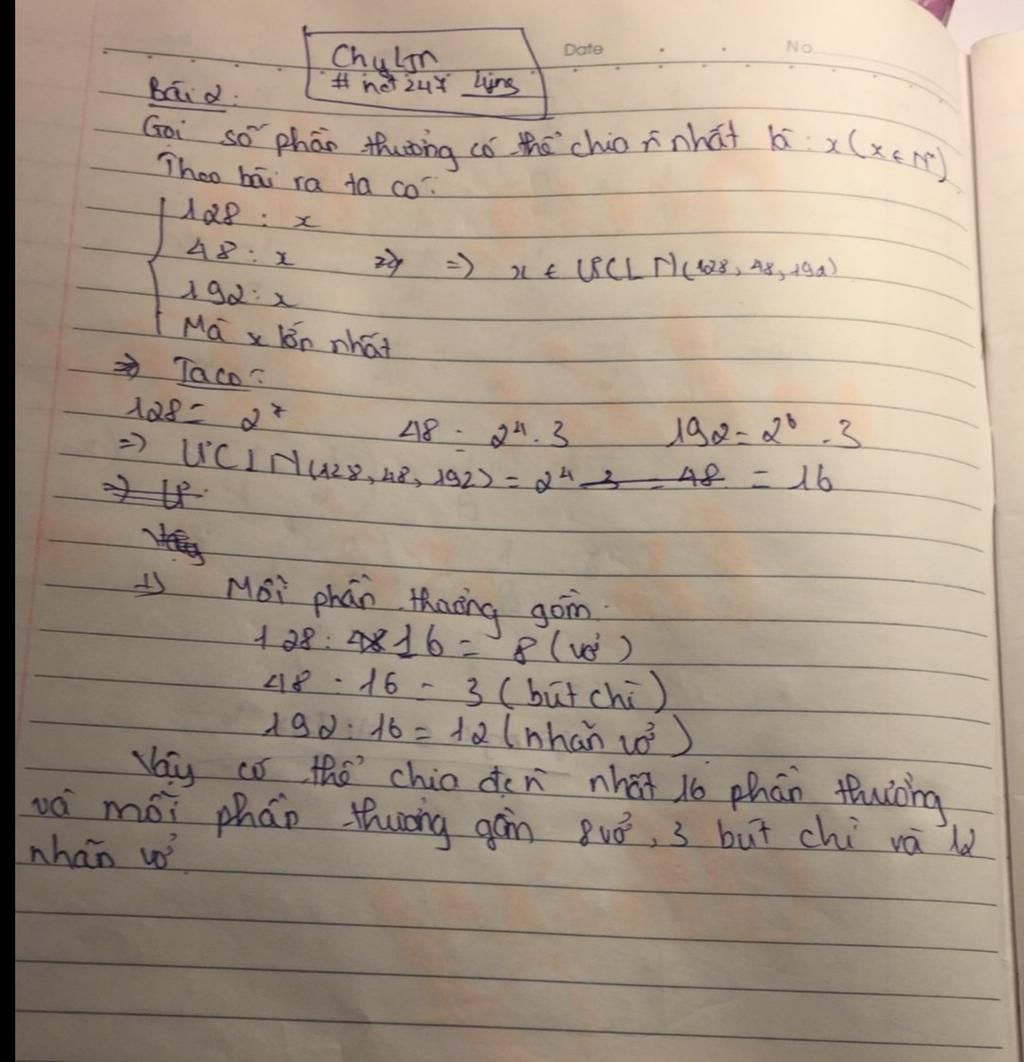 Date No
ChyLTn
# hot 247 Lizns
Bài 2:
Gọi số phần thưởng có thể chia n nhất là : x (x ∈ N*)
Theo bài ra ta có:
128 : x
48 : x => x ∈ ƯCLN(128, 48, 192)
192 : x
Mà x lớn nhất
=> Ta có:
128 = 2⁷ 48 = 2⁴ . 3 192 = 2⁶ . 3
=> ƯCLN(128, 48, 192) = 2⁴ = 16
=> Mỗi phần thưởng gồm:
128 : 16 = 8 (vở)
48 : 16 = 3 (bút chì)
192 : 16 = 12 (nhãn vở)
Vậy có thể chia nhất 16 phần thưởng
và mỗi phần thưởng gồm 8 vở, 3 bút chì và 12
nhãn vở.